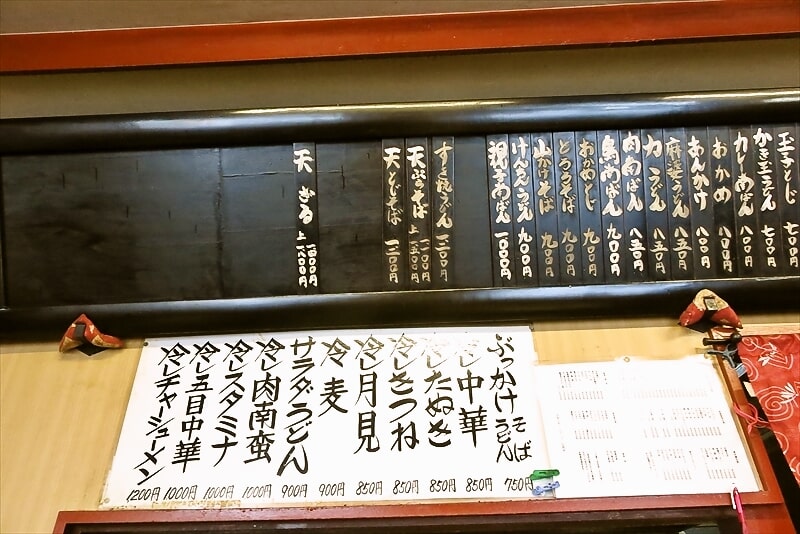 玉子とじ 七〇〇円
かき玉うどん 七〇〇円
カレーなんばん 八〇〇円
おかめ 八〇〇円
あんかけ 八〇〇円
麻婆うどん 八五〇円
力うどん 八五〇円
肉なんばん 八五〇円
鳥なんばん 九〇〇円
おかめとじ 九〇〇円
とろろそば 九〇〇円
山かけそば 九〇〇円
けんちんうどん 九〇〇円
親子なんばん 一〇〇〇円
すき焼うどん 一二〇〇円
天ぷらそば 一一〇〇円
上 一五〇〇円
天とじそば 一二〇〇円
天ざる 一四〇〇円
上 一八〇〇円
ぶっかけ そば うどん 750円
冷し中華 850円
冷したぬき 850円
冷しきつね 850円
冷し月見 850円
冷麦 900円
サラダうどん 900円
冷し肉南蛮 1000円
冷しスタミナ 1000円
冷し五目中華 1000円
冷しチャーシューメン 1200円